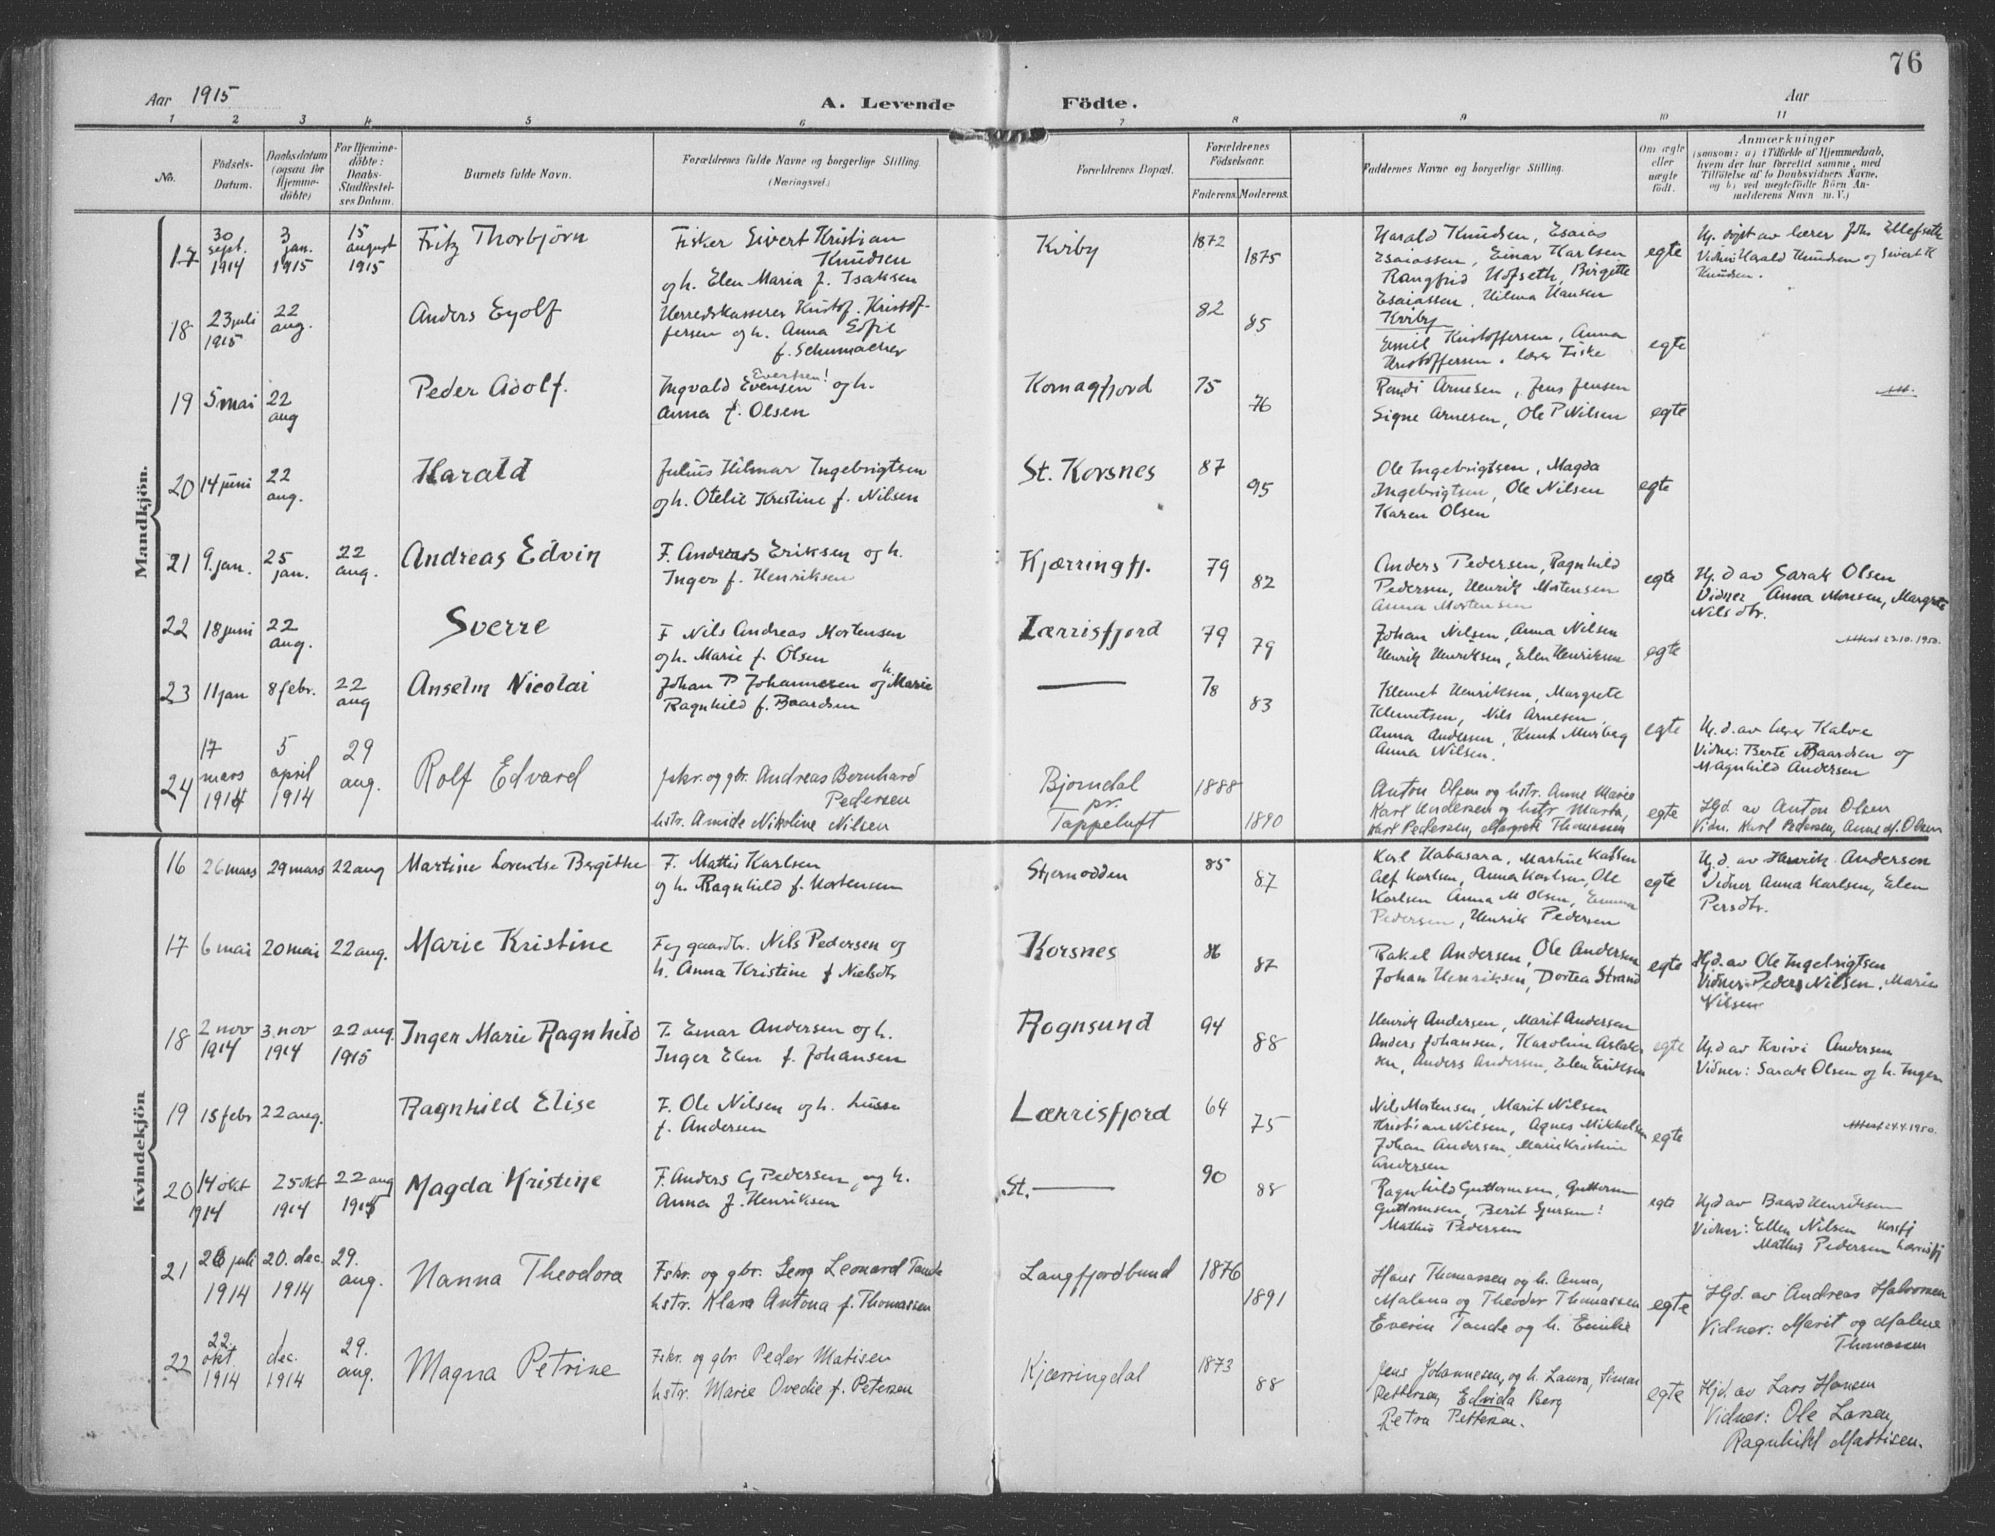 76
Aar 1915
A. Levende Födte.
Aar
1 2 3 4 5 6 7 8 9 10 11
No.
Födsels-
Datum.
Daabsdatum
(ogsaa for
Hjemme-
döbte)
For Hjemme-
döbte:
Daabs-
Stadfæstel-
ses Datum.
Barnets fulde Navn.
Forældrenes fulde Navne og borgerlige Stilling.
(Næringsvei.)
Forældrenes Bopæl.
Forældrenes
Födselsaar.
Faderens. Moderens.
Faddernes Navne og borgerlige Stilling.
Om ægte
eller
uægte
födt.
Anmærkninger
(saasom: a) i Tilfælde af Hjemmedaab,
hvem der har forrettet samme, med
Tilföielse af to Daabsvidners Navne,
og b) ved uegtefödte Börn An-
melderens Navn m. V.)
Mandkjön.
17
30
sept.
1914
3
jan.
1915
15
august
1915
Fritz Thorbjörn
Fisker Sivert Kristian
Knudsen
og h. Elen Maria f. Isaksen
Kviby
1872
1875
Harald Knudsen, Esaias
Esaiassen, Einar Karlsen
Rangfrid Hofseth, Birgitte
Esaiassen, Hilma Hansen
egte
Hj. döpt av lærer Johs Ellefseth
Vidner Harald Knudsen og Sivert K
Knudsen.
18
23 juli
1915
22
aug.
Anders Eyolf
Herredskasserer Kristof. Kristof-
fersen og h. Anna Sofie
f. Schumacher
82
85
Kviby
Emil Kristoffersen, Anna
Kristoffersen. lærer Fiske
egte
19
5 mai
22
aug
Peder Adolf.
Evertsen!
Ingvald Evensen og h.
Anna f. Olsen
Komagfjord
75
76
Randi Arnesen, Jens Jensen
Signe Arnesen, Ole P Nilsen
egte
20
14 juni
22
aug.
Harald
Julius Hilmar Ingebrigtsen
og h. Otelie Kristine f. Nilsen
St. Korsnes
87
95
Ole Ingebrigtsen, Magda
Ingebrigtsen, Ole Nilsen
Karen Olsen
egte
21
9. jan.
25
jan.
22
aug.
Andreas Edvin
F. Andreas Eriksen og h.
Inger f. Henriksen
Kjærringfj.
79
82
Anders Pedersen, Ragnhild
Pedersen, Henrik Mortensen
Anna Mortensen
egte
Hj. d av Sarak Olsen
Vidner Anna Monsen, Margrete
Nilsdtr.
22
18 juni
22
aug.
Sverre
F Nils Andreas Mortensen
og h. Marie f. Olsen
Lærrisfjord
79
79
Johan Nilsen, Anna Nilsen
Henrik Henriksen, Elen Henriksen
egte
Attest 23.10.1950.
23
11 jan
8 febr.
22
aug
Anselm Nicolai
Johan P Johannesen og h. Marie
Ragnhild f. Baardsen
78
83
Klemet Henriksen, Margrete
Klemetsen, Nils Arnesen
Anna Andersen, Knut Murberg
Anna Nilsen.
egte
Hj. d. av lærer Kalve
Vidner: Berte Baardsen og
Magnhild Andersen
24
17
mars
1914
5
april
1914
29
aug.
Rolf Edvard
fskr. og gbr. Andreas Bernhard
Pedersen
hstr. Amide Nikoline Nilsen
Bjorndal
pr.
Tappeluft
1888
1890
Anton Olsen og hstr. Anne Marie
Karl Andersen og hstr Marta,
Karl Pedersen, Margrete Thomassen
egte
Hjd. av Anton Olsen
Vidn. Karl Pedersen, Anne M. Olsen
Kvindekjön
16
26 mars
29 mars
22 aug
Martine Lorentse Bergitthe
F. Mattis Karlsen
og h. Ragnhild f. Mortensen
Stjernodden
85
87
Karl Habasara, Martine Karlsen
Alf Karlsen, Anna Karlsen, Ole
Karlsen Anna M Olsen, Emma
Pedersen, Henrik Pedersen
egte
Hj. d. av Henrik Andersen
Vidner Anna Karlsen, Elen
Persdtr.
17
6 mai
20 mai
22 aug.
Marie Kristine
F og gaardbr. Nils Pedersen og
h. Anna Kristine f Nielsdtr
Korsnes
86
87
Rakel Andersen, Ole Andersen
Johan Henriksen, Dortea Strand
egte
Hjd. av Ole Ingebrigtsen
Vidner Peder Nilsen, Marie
Nilsen
18
2 nov
1914
3. nov
1914
22 aug.
1915
Inger Marie Ragnhild
F. Einar Andersen og h.
Inger Elen f. Johansen
Rognsund
94
88
Henrik Andersen, Marit Andersen
Anders Johansen, Karoline Aslak-
sen, Anders Andersen, Elen Eriksen
egte
Hj. d av Kvivi Andersen
Vidner: Sarak Olsen og h. Inger
19
15 febr
22 aug.
Ragnhild Elise
F. Ole Nilsen og h. Lusse
f. Andersen
Lærrisfjord
64
75
Nils Mortensen, Marit Nilsen
Kristian Nilsen, Agnes Mikkelsen
Johan Andersen, Marie Kristine
Andersen
egte
Attest 24.4.1950.
20
14 okt
1914
25 okt
1914
22 aug
1915
Magda Kristine
F. Anders G Pedersen, og h.
Anna f. Henriksen
St.
90
88
Ragnhild Guttormsen, Guttorm
Guttormsen, Berit Sjursen!
Mathis Pedersen
egte
Hjd av Baard Henriksen
Vidner: Ellen Nilsen Korsfj
Mathis Pedersen Lærrisfj
21
26 juli
1914
20. dec.
1914
29.
aug.
Nanna Theodora
Fskr. og gbr. Georg Leonard Tande
hstr. Klara Antona f. Thomassen
Langfjordbund
1876
1891
Hans Thomassen og h. Anna,
Malena og Theodor Thomassen
Everin Tande og h. Emilie
egte
Hjd. av Andreas Halvorsen
Vidner: Marit og Malene
Thomassen
22
22
okt.
1914
dec.
1914
29.
aug.
Magna Petrine
Fskr. og gbr Peder Matisen
hstr. Marie Ovedie f. Petersen
Kjærringdal
1873
88
Jens Johannesen og h. Laura, Simon
Pettersen, Edvida Berg
Petra Pettersen.
egte
Hjd. av Lars Hansen
Vidner: Ole Larsen,
Ragnhild Mattisen.